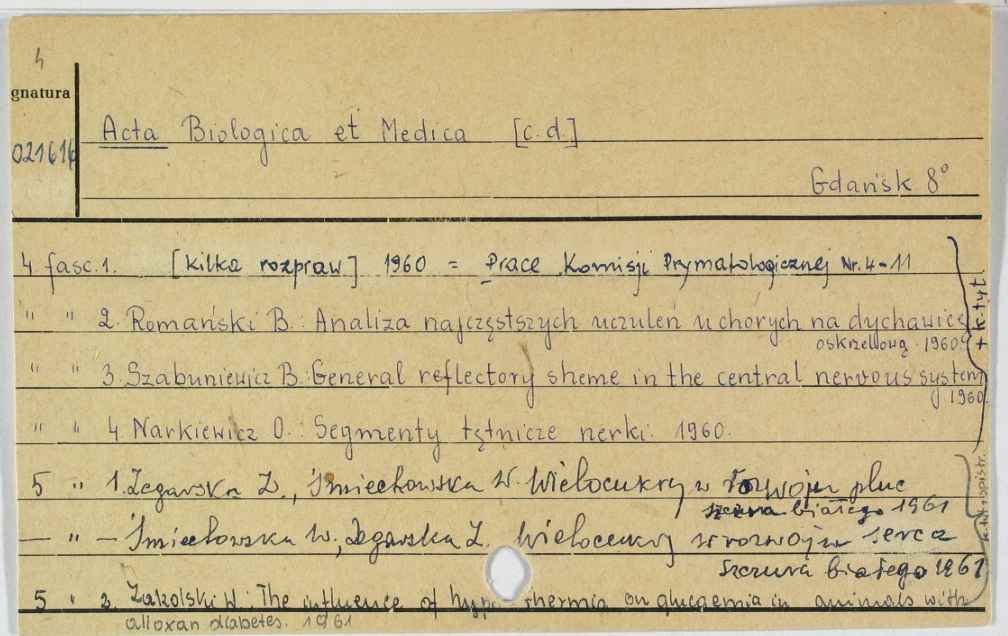 4
gnatura
021616
Acta Biologica et Medica [c.d.]
Gdańsk 8°
4 fasc. 1. [kilka rozpraw] 1960 = Prace Komisji Prymatologicznej Nr. 4-11
" " 2. Romański B.: Analiza najczęstszych uczuleń u chorych na dychawicę
oskrzelową. 1960.
" " 3. Szabuniewicz B.: General reflectory sheme in the central nervous system
1960.
" " 4. Narkiewicz O.: Segmenty tętnicze nerki. 1960.
+ k. tyt.
5 " 1. Żegarska Z., Śmiechowska W. Wielocukry w rozwoju płuc
szczura białego 1961
— " — Śmiechowska W., Żegarska Z. Wielocukry w rozwoju serca
szczura białego 1961
5 " 2. Zakolski W. The influence of hypothermia on glucaemia in animals with
alloxan diabetes. 1961